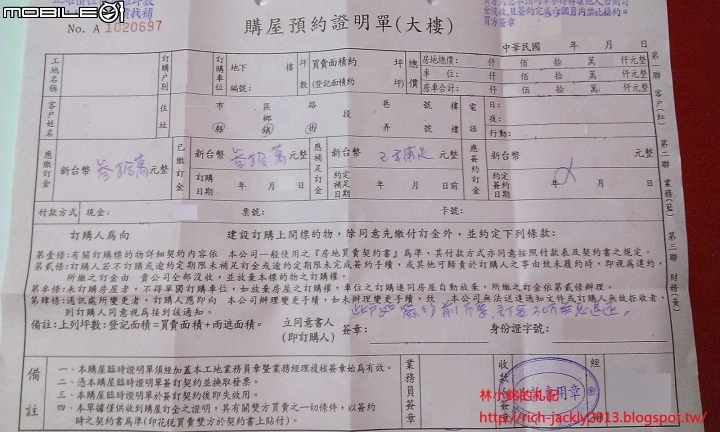 mobile01
找補
No. A 1020697
購屋預約證明單(大樓)
買方簽章
中華民國 年 月 日
工地名稱
訂購戶別
訂購車位
地下 樓
編號:
坪數
買賣面積約 坪
(登記面積約 坪)
總價
房地總價: 仟 佰 拾 萬 仟元整
車位: 仟 佰 拾 萬 仟元整
房車合計: 仟 佰 拾 萬 仟元整
第一聯 客戶(紅)
客戶姓名
住址
市 區 路 巷 號 樓
縣 鄉鎮 街 弄 號 樓
電話
日:
夜:
行動:
第二聯 業務(藍)
應繳訂金
新台幣 參拾萬 元整
已繳訂金
新台幣 參拾萬 元整
訂購日期 年 月 日
應補足訂金
新台幣 已補足 元整
約定補足日期 年 月 日前
應簽約訂金
新台幣 元整
約定簽約日期 年 月 日
第三聯 財務(黃)
付款方式 現金: 票號: 卡號:
訂購人爲向 建設訂購上開標的物,除同意先繳付訂金外,並約定下列條款:
第壹條:有關訂購標的物詳細契約內容依 本公司一般使用之『房地買賣契約書』爲準,其付款方式亦同意按照付款表及契約書之規定。
第貳條:訂購人若不訂購或逾約定期限未補足訂金或逾約定期限未完成簽約手續,或其他可歸責於訂購人之事由致未履約時,即視爲違約,
所繳之訂金由 貴公司全部沒收,並放棄本標的物之訂購權。
第參條:未訂購房屋者,不得單獨訂購車位,如放棄房屋之訂購權,車位之訂購連同房屋自動放棄,所繳之訂金依第貳條辦理。
第肆條:通訊處所變更者,訂購人應即向 本公司辦理變更手續,如未辦理變更手續,致 本公司無法送達通知文件或訂購人無故拒收者,
則訂購人同意視爲移已該送達
備註:上列坪數:登記面積=買賣面積+雨遮面積。
立同意書人
(即訂購人) 簽章: 身份證字號:
備註
一、本購屋臨時證明單須經加蓋本工地業務員章暨業務經理複核簽章始爲有效。
二、憑本購屋臨時證明單簽訂契約並換取發票。
三、本購屋臨時證明單於簽訂契約後即失效用。
四、本單據僅供收到購屋訂金之證明,其有關雙方買賣之一切條件,以簽約
時之契約書爲準(印花稅買賣雙方於契約書上貼付)。
業務員簽章
收款
經
專用章
林小銘的札記
http://rich-jackly2013.blogspot.tw/